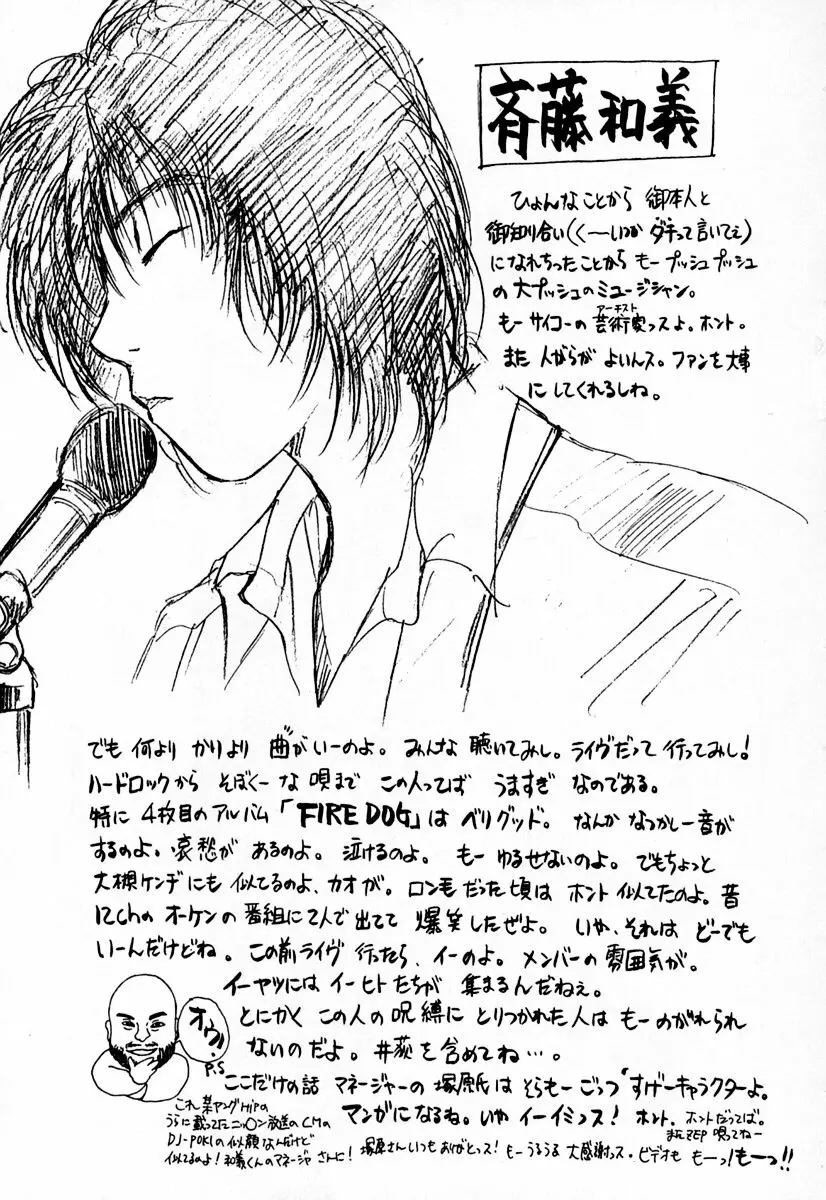 斉藤和義
ひょんなことから 御本人と
御知り合い(く〜いつか ダチって言いてぇ)
になれちったことから もープッシュプッシュ
の大プッシュのミュージシャン。
アーチスト
もー サイコーの 芸術家っスよ。ホント。
また 人がらが よいんス。ファンを大事
に してくれるしね。
でも 何より かにより 曲がいーのよ。みんな 聴いてみし。ライヴだって 行ってみし!
ハードロックから そぼくーな 唄まで この人ってば うますぎ なのである。
特に 4枚目のアルバム「FIRE DOG」は ベリグッド。なんか なつかしー音が
するのよ。哀愁が あるのよ。泣けるのよ。もー ゆるせないのよ。でもちょっと
大槻ケンヂにも 似てるのよ、カオが。ロン毛だった頃は ホント 似てたのよ。昔
12chの オーケンの 番組に2人で 出てて 爆笑したぜよ。いや、それは どーでも
いーんだけどね。この前ライヴ 行ったら、イーのよ。メンバーの 雰囲気が。
イーヤツには イーヒトたちが 集まるんだねぇ。
とにかく この人の 呪縛に とりつかれた人は もーのがれられ
ないのだよ。井荻を含めてね…。
オウッ!
P.S
ここだけの話 マネージャーの 塚原氏は そらもー ごっつ すげーキャラクターよ。
マンガになるね。いや イーイミっス! ホント。ホントだってば。
またZEP 唄ってねー
これ 某ヤングHipの
うらに載ってたニッ〇ン放送のCMの
DJ-POKIの似顔なんだけど
似てるのよ!和義くんのマネージャさんに!
塚原さんいつもありがとっス! もーうるうる 大感謝っス。ビデオも もーっ!もーっ!!